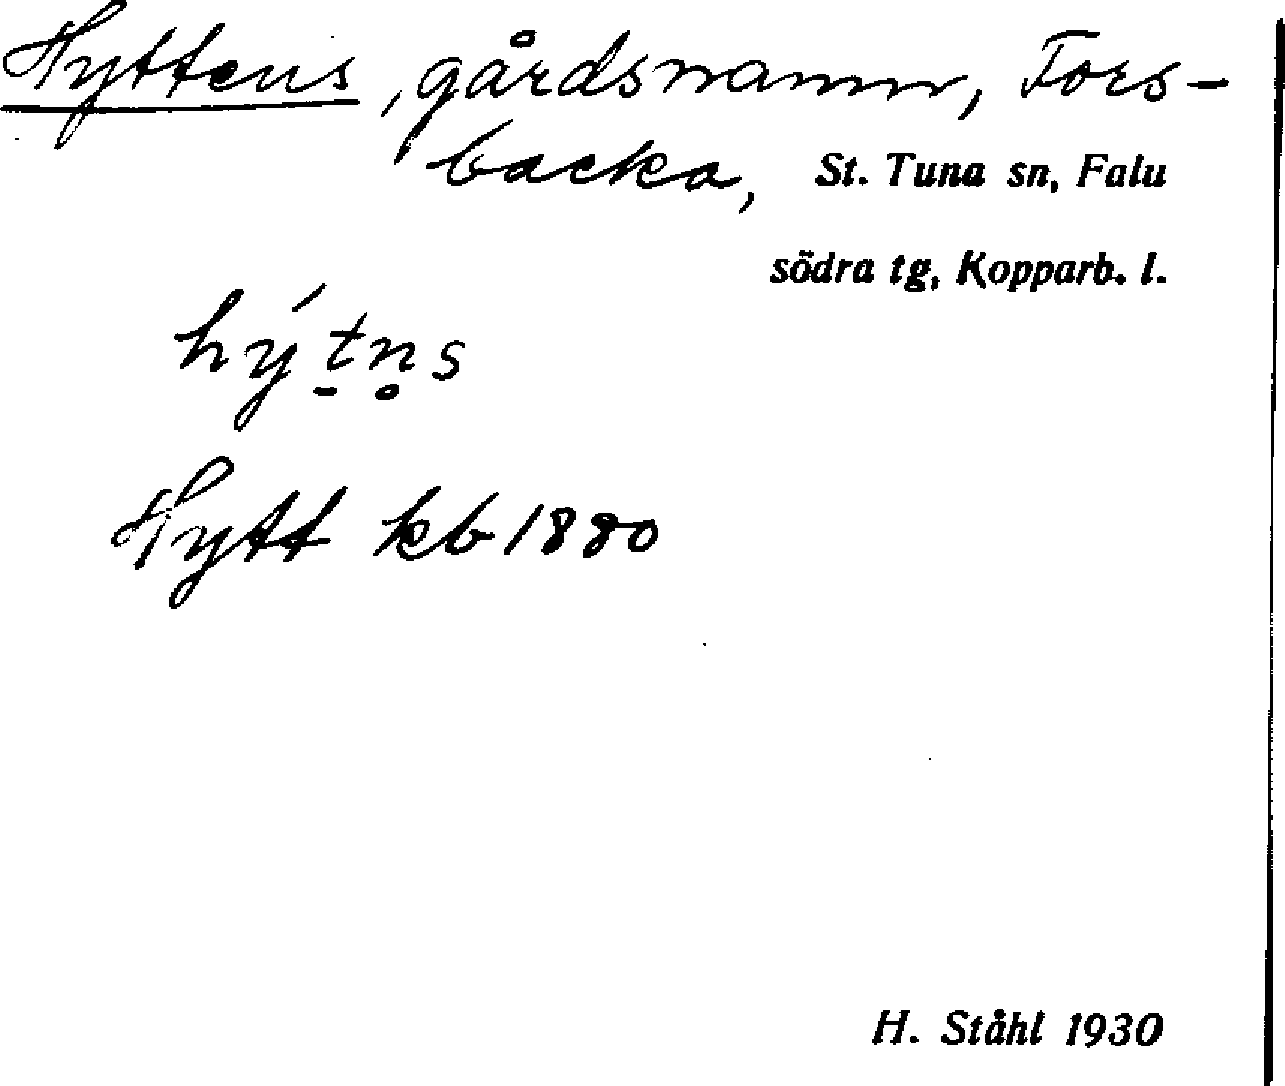 Hyttens, gårdsnamn, Fors-
backa, St. Tuna sn, Falu
södra tg, Kopparb. l.
hý́t̠n̥s
Hytt kb 1880
H. Ståhl 1930